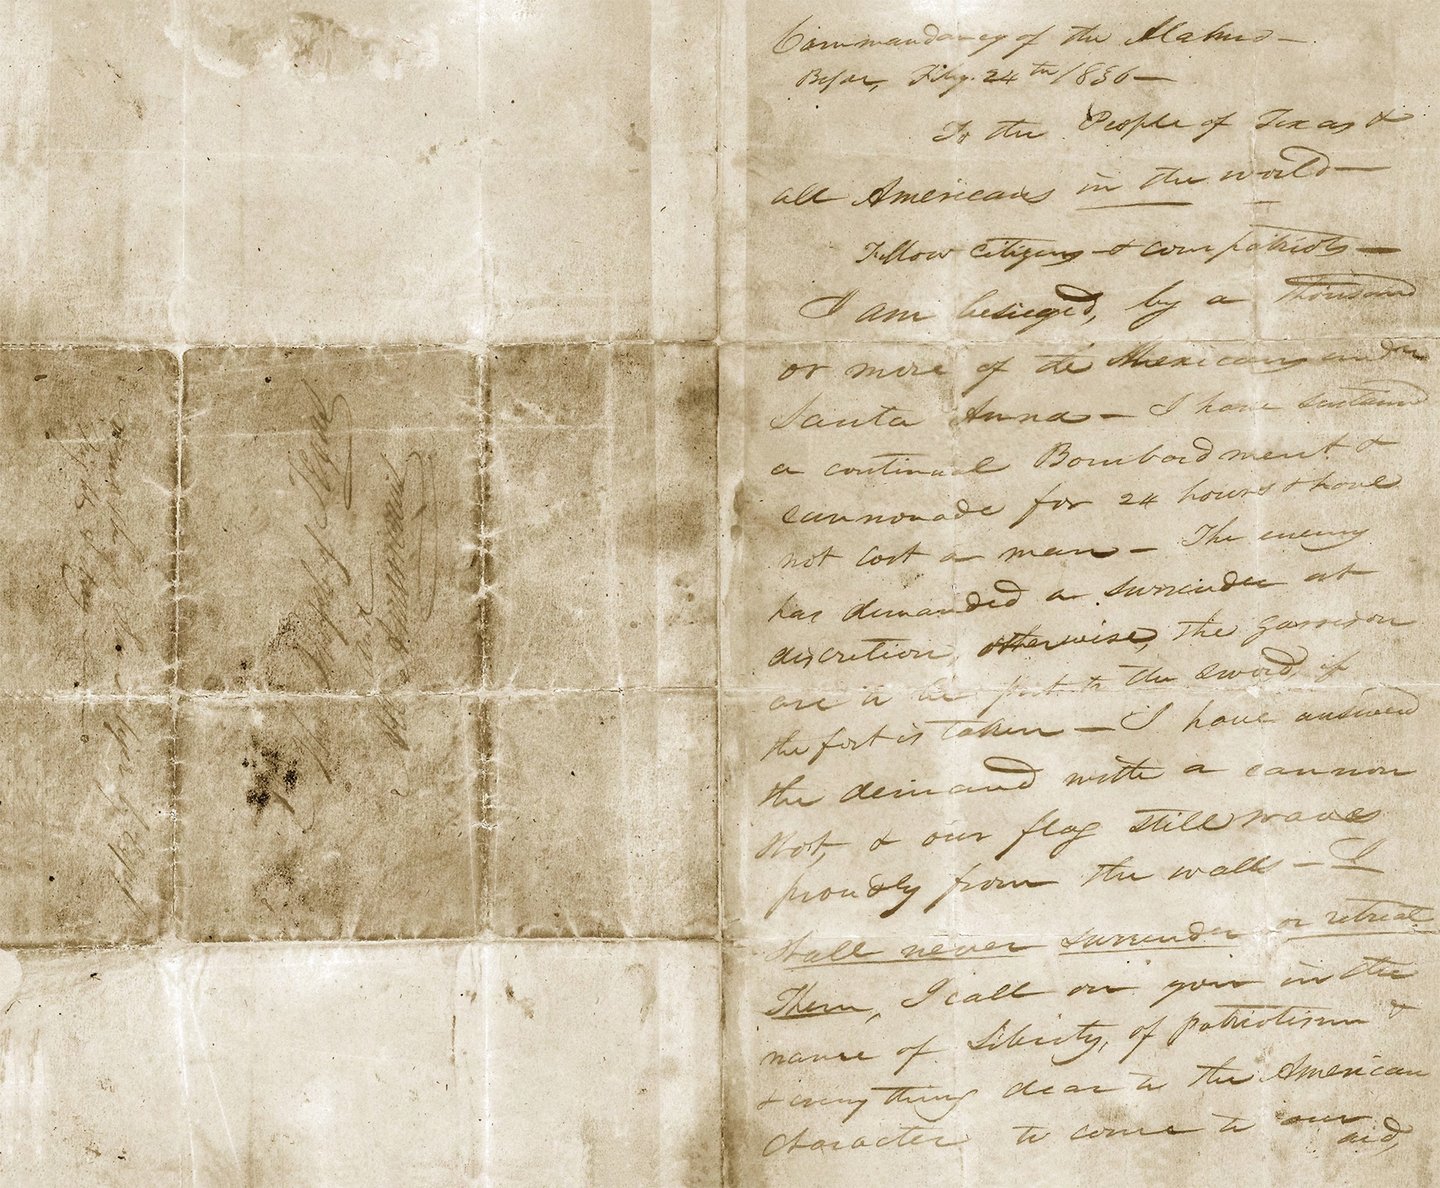 Commandancy of the Alamo—
Bejar, Feby. 24th 1836—
To the People of Texas &
all Americans in the world—
Fellow citizens & compatriots—
I am besieged, by a thousand
or more of the Mexicans under
Santa Anna — I have sustained
a continual Bombardment &
cannonade for 24 hours & have
not lost a man — The enemy
has demanded a surrender at
discretion, otherwise, the garrison
are to be put to the sword, if
the fort is taken — I have answered
the demand with a cannon
shot, & our flag still waves
proudly from the walls — I
shall never surrender or retreat
Then, I call on you in the
name of Liberty, of patriotism &
& every thing dear to the American
character to come to our
aid,
People of Texas
and
All Americans